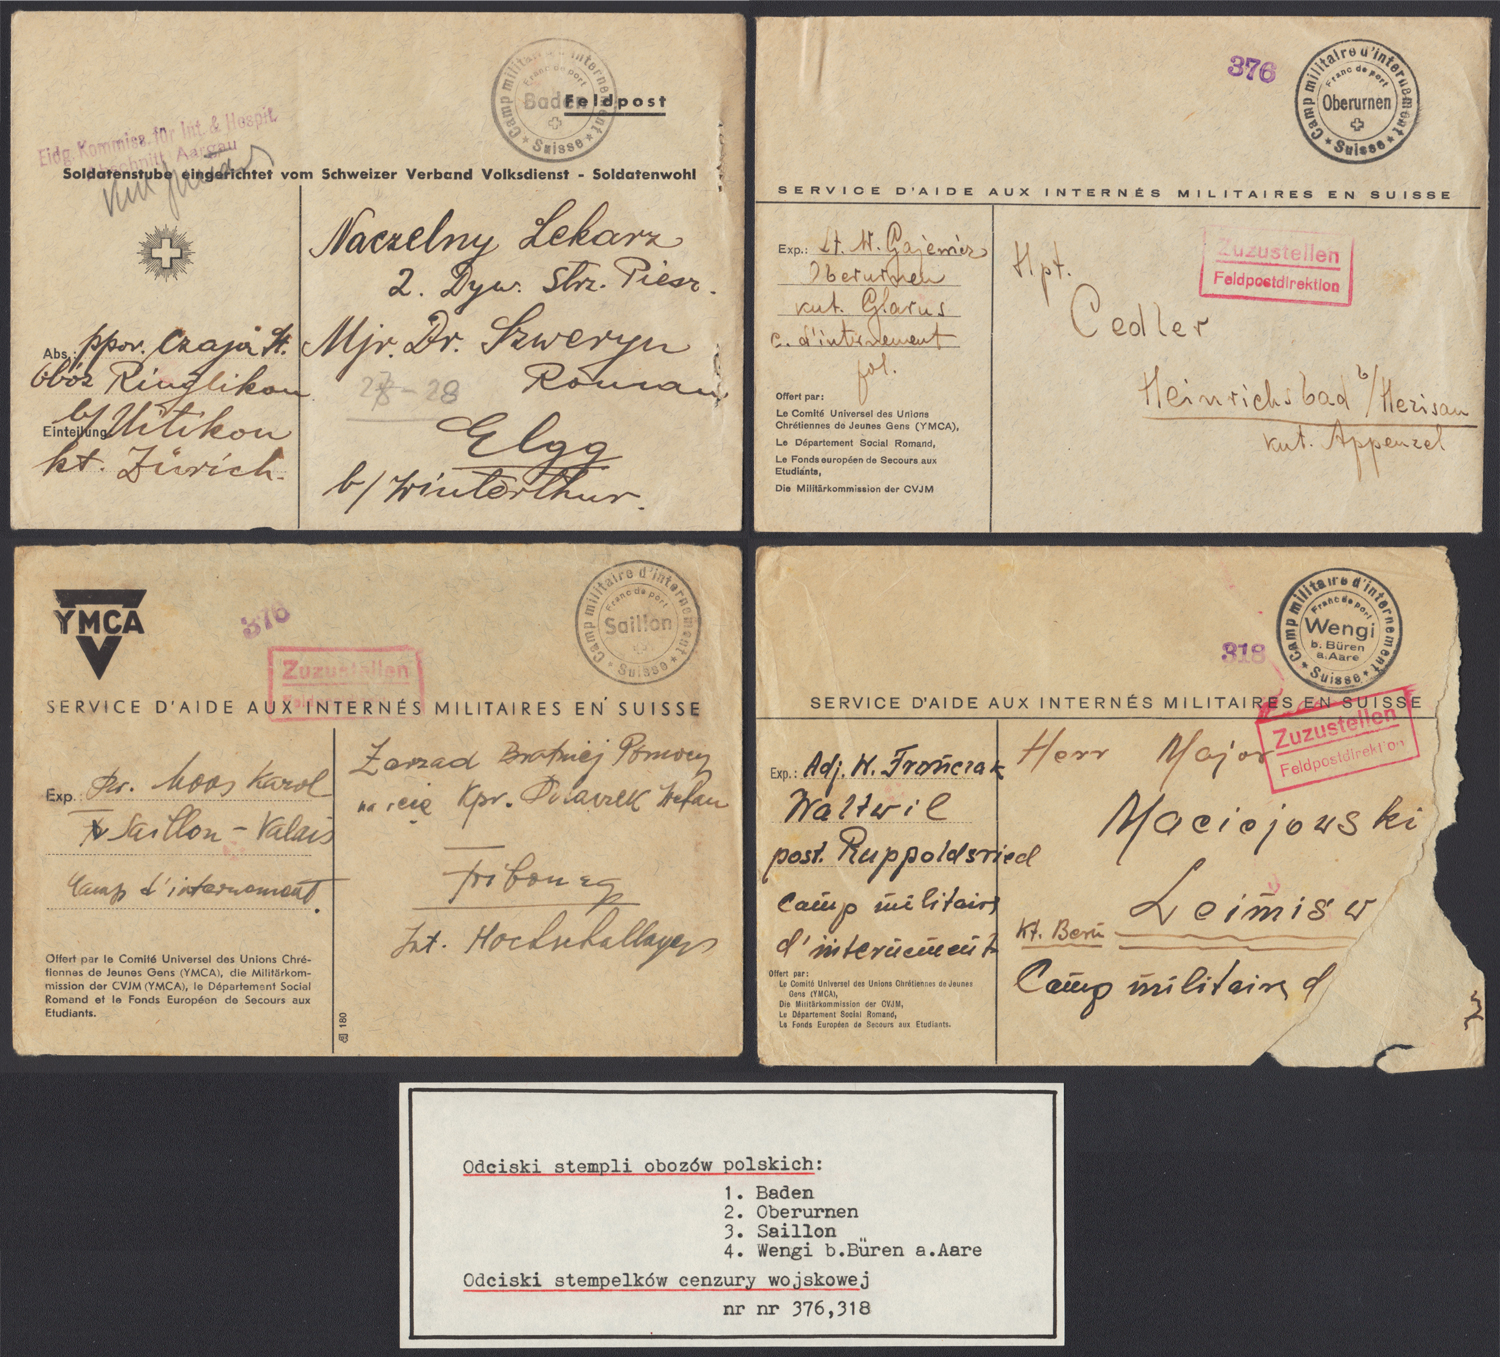 Camp militaire d'internement
Franc de port
Baden
Suisse
Feldpost
Eidg. Kommiss. für Int. & Hospit.
Abschnitt Aargau
Soldatenstube eingerichtet vom Schweizer Verband Volksdienst - Soldatenwohl
Naczelny Lekarz
2. Dyw. Strz. Piesz.
Abs.: ppor. Czaja St.
Mjr. Dr. Szweryn
obóz Ringlikon
27-28
Roman
Einteilung b/Uitikon
Elgg
kt. Zürich.
b/Winterthur.
376
Camp militaire d'internement
Franc de port
Oberurnen
Suisse
SERVICE D'AIDE AUX INTERNÉS MILITAIRES EN SUISSE
Exp.: Lt. W. Gajewicz
Oberurnen
knt. Glarus
c. d'internement
pol.
Offert par:
Le Comité Universel des Unions
Chrétiennes de Jeunes Gens (YMCA),
Le Département Social Romand,
Le Fonds européen de Secours aux
Etudiants,
Die Militärkommission der CVJM
Zuzustellen
Feldpostdirektion
Hpt.
Cedler
Heinrichsbad b/Herisau
knt. Appenzel
YMCA
376
Zuzustellen
Camp militaire d'internement
Franc de port
Saillon
Suisse
SERVICE D'AIDE AUX INTERNÉS MILITAIRES EN SUISSE
Exp.: Moos Karol
Saillon - Valais
Camp d'internement.
Offert par le Comité Universel des Unions Chré-
tiennes de Jeunes Gens (YMCA), die Militärkom-
mission der CVJM (YMCA), le Département Social
Romand et le Fonds Européen de Secours aux
Etudiants.
180
Zarząd Bratniej Pomocy
na ręce Kpr. Stefan
Fribourg
Int. Hochschullager
318
Camp militaire d'internement
Franc de port
Wengi
b. Büren
a. Aare
Suisse
SERVICE D'AIDE AUX INTERNÉS MILITAIRES EN SUISSE
Zuzustellen
Feldpostdirektion
Exp.: Adj. W. Frończak
Waltwil
post. Ruppoldsried
Camp militaire
d'internement
Offert par:
Le Comité Universel des Unions Chrétiennes de Jeunes
Gens (YMCA),
Die Militärkommission der CVJM,
Le Département Social Romand,
Le Fonds Européen de Secours aux Etudiants.
Herr Major
Maciejowski
Leimisw
Kt. Bern
Camp militaire d
Odciski stempli obozów polskich:
1. Baden
2. Oberurnen
3. Saillon
4. Wengi b.Büren a.Aare
Odciski stempelków cenzury wojskowej
nr nr 376,318